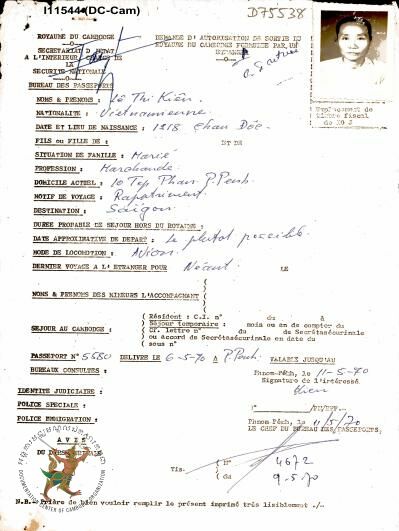 I11544 (DC-Cam)
D75538
ROYAUME DU CAMBODGE
SECRETARIAT D'ETAT
A L'INTERIEUR CHARGE DE
LA
SECURITE NATIONALE
BUREAU DES PASSEPORTS
DEMANDE D'AUTORISATION DE SORTIE DU
ROYAUME DU CAMBODGE FORMULEE PAR UN
ETRANGER
Emplacement du
timbre fiscal
de 20 J
NOMS & PRENOMS : Lê Thi Kiên.
NATIONALITE : Vietnamienne
DATE ET LIEU DE NAISSANCE : 1918 Chau Dôc.
FILS ou FILLE DE : ET DE
SITUATION DE FAMILLE : Marié
PROFESSION : Marchande
DOMICILE ACTUEL : 10 Tep Phan P.Penh
MOTIF DE VOYAGE : Rapatriement
DESTINATION : Saïgon
DUREE PROBABLE DE SEJOUR HORS DU ROYAUME :
DATE APPROXIMATIVE DE DEPART : Le plutot possible
MODE DE LOCOMOTION : Avion
DERNIER VOYAGE A L'ETRANGER POUR Néant LE
NOMS & PRENOMS DES MINEURS L'ACCOMPAGNANT
SEJOUR AU CAMBODGE :
( Résident : C.I. n° du à
( Séjour temporaire : mois ou an de compter du
( Cf. lettre n° du de Secrétasécurinale
( ou Accord de Secrétasécurinale en date du
( sous n°
PASSEPORT N° 5580 DELIVRE LE 6-5-70 A P.Penh VALABLE JUSQU'AU
BUREAUX CONSULTES : Phnom-Pénh, le 11-5-70
Signature de l'intéressé
Kien
IDENTITE JUDICIAIRE :
POLICE SPECIALE :
POLICE IMMIGRATION :
Phnom Pénh, le 11/5/70
LE CHEF DU BUREAU DES PASSEPORTS,
AVIS
Vis.
N° 4672
9-5-70
DOCUMENTATION CENTER OF CAMBODIA ORGANIZATION
N.B.- Prière de bien vouloir remplir le présent imprimé très lisiblement ./-